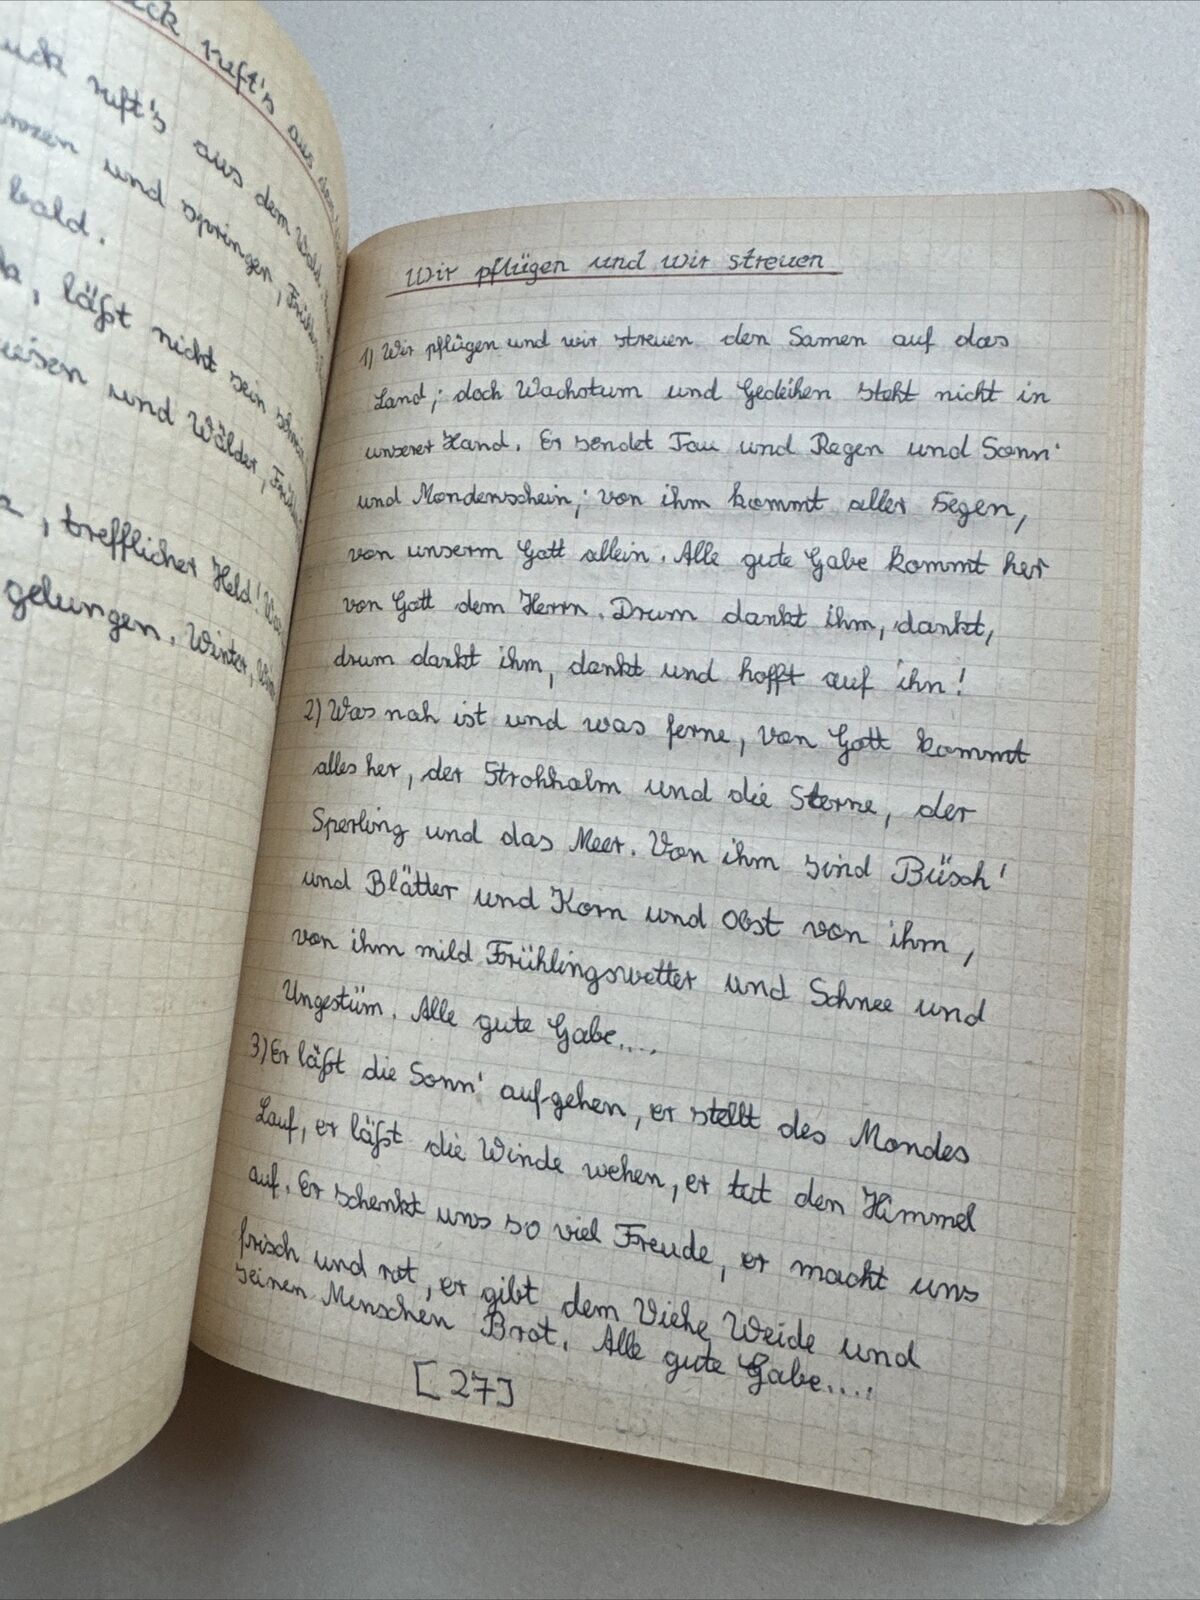 ruft's aus
ruft's aus dem Wald
und springen,
bald.
läßt nicht sein
und Wälder,
, trefflicher Held!
gelungen. Winter,
Wir pflügen und wir streuen
1) Wir pflügen und wir streuen den Samen auf das
Land; doch Wachstum und Gedeihen steht nicht in
unserer Hand. Er sendet Tau und Regen und Sonn'
und Mondenschein; von ihm kommt aller Segen,
von unserm Gott allein. Alle gute Gabe kommt her
von Gott dem Herrn. Drum dankt ihm, dankt,
drum dankt ihm, dankt und hofft auf ihn!
2) Was nah ist und was ferne, von Gott kommt
alles her, der Strohhalm und die Sterne, der
Sperling und das Meer. Von ihm sind Büsch'
und Blätter und Korn und Obst von ihm,
von ihm mild Frühlingswetter und Schnee und
Ungestüm. Alle gute Gabe....
3) Er läßt die Sonn' auf-gehen, er stellt des Mondes
Lauf, er läßt die Winde wehen, er tut den Himmel
auf. Er schenkt uns so viel Freude, er macht uns
frisch und rot, er gibt dem Viehe Weide und
seinen Menschen Brot. Alle gute Gabe....
[27]